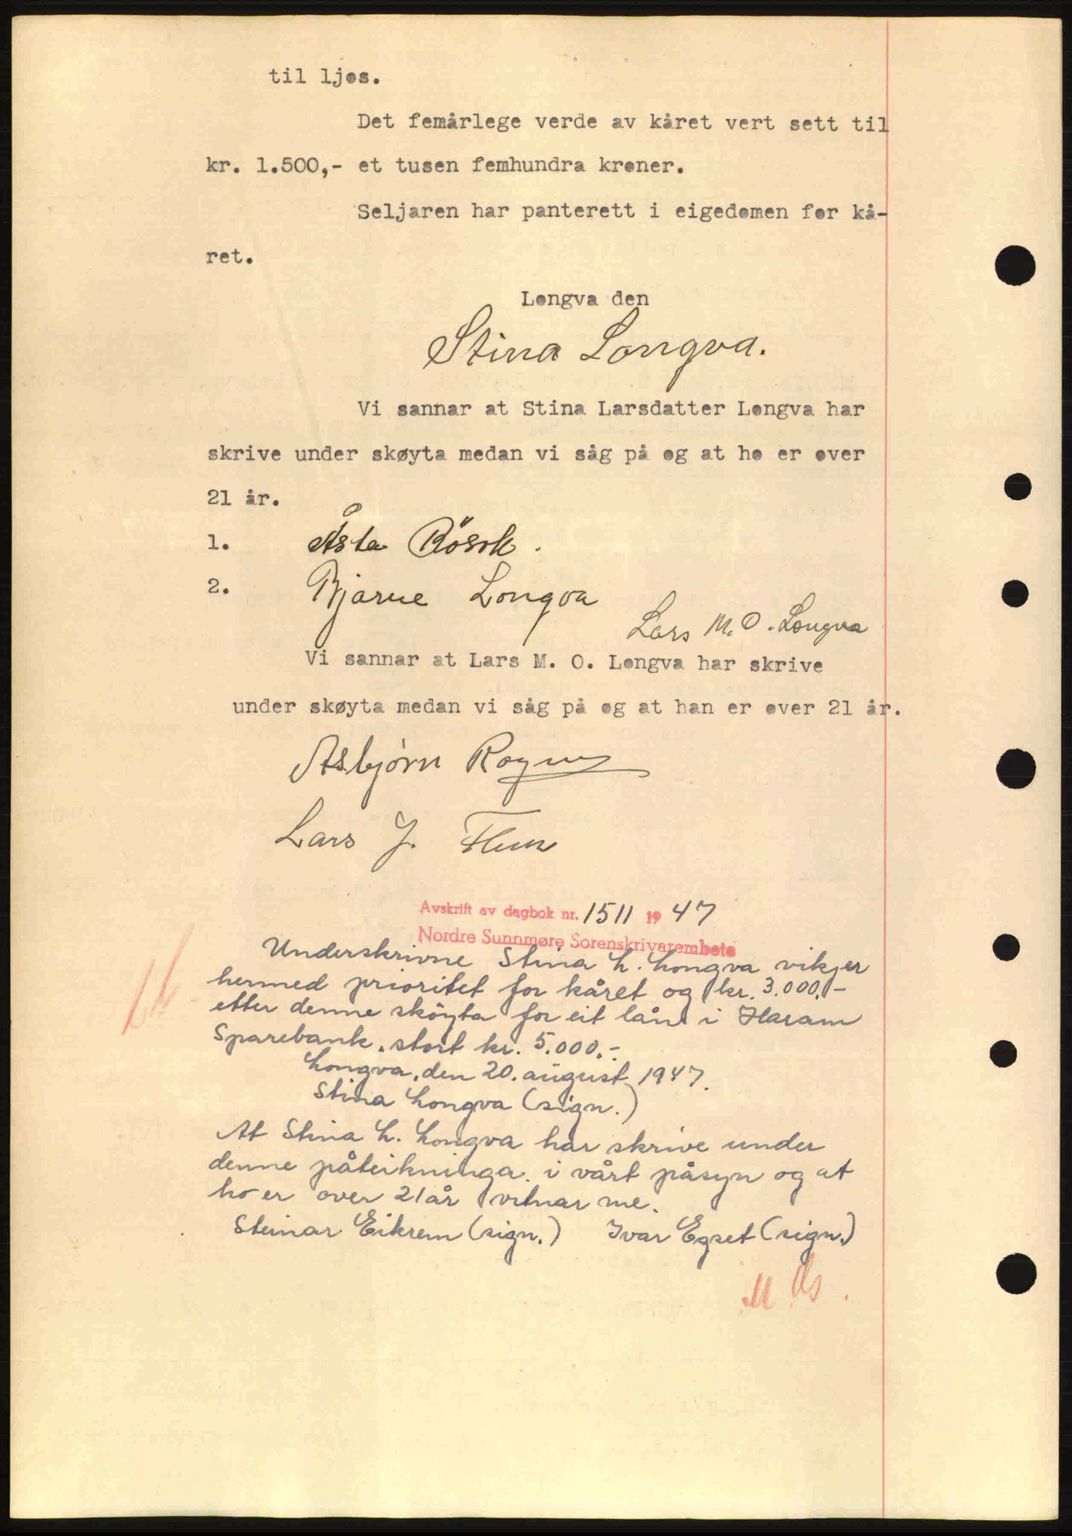 til ljos.
Det femårlege verde av kåret vert sett til
kr. 1.500,- et tusen femhundra kroner.
Seljaren har panterett i eigedomen for kå-
ret.
Longva den
Stina Longva.
Vi sannar at Stina Larsdatter Longva har
skrive under skøyta medan vi såg på og at ho er over
21 år.
1. Åsta Rösok.
2. Bjarne Longva
Lars M. O. Longva
Vi sannar at Lars M. O. Longva har skrive
under skøyta medan vi såg på og at han er over 21 år.
Asbjørn
Lars J. Flem
Avskrift av dagbok nr. 1511 1947
Nordre Sunnmøre Sorenskrivarembete
Underskrivne Stina L. Longva vikjer
hermed prioritet for kåret og kr. 3.000,-
etter denne sköyta for eit lån i Haram
Sparebank, stort kr. 5.000.-
Longva, den 20. august 1947.
Stina Longva (sign.)
At Stina L. Longva har skrive under
denne påteikninga i vårt påsyn og at
ho er over 21 år vitnar me.
Steinar Eikrem (sign.) Ivar Egset (sign.)